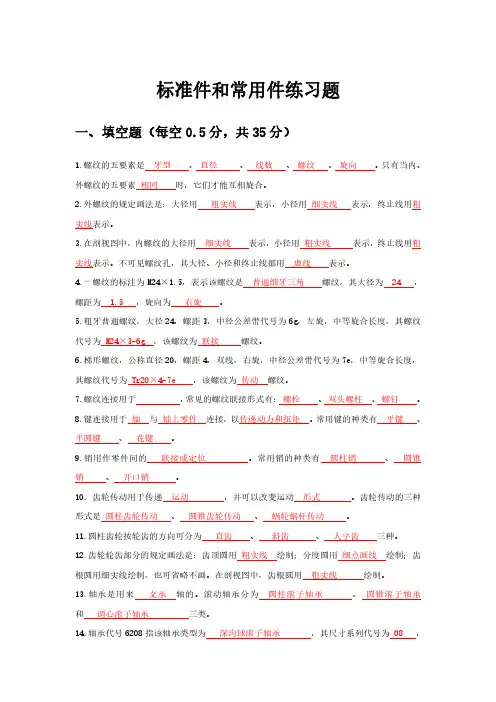 标准件和常用件练习题
一、填空题（每空0.5分，共35分）
1.螺纹的五要素是 牙型 、 直径 、 线数 、 螺纹 、 旋向 。只有当内、
外螺纹的五要素 相同 时，它们才能互相旋合。
2.外螺纹的规定画法是：大径用 粗实线 表示，小径用 细实线 表示，终止线用粗
实线表示。
3.在剖视图中，内螺纹的大径用 细实线 表示，小径用 粗实线 表示，终止线用粗
实线表示。不可见螺纹孔，其大径、小径和终止线都用 虚线 表示。
4.一螺纹的标注为M24×1.5，表示该螺纹是 普通细牙三角 螺纹，其大径为 24 ，
螺距为 1.5 ，旋向为 右旋 。
5.粗牙普通螺纹，大径24，螺距3，中径公差带代号为6g，左旋，中等旋合长度，其螺纹
代号为 M24×3-6g ，该螺纹为 联接 螺纹。
6.梯形螺纹，公称直径20，螺距4，双线，右旋，中径公差带代号为7e，中等旋合长度，
其螺纹代号为 Tr20×4-7e ，该螺纹为 传动 螺纹。
7.螺纹连接用于 ，常见的螺纹联接形式有： 螺栓 、 双头螺柱 、 螺钉 。
8.键连接用于 轴 与 轴上零件 连接，以传递动力和扭矩 。常用键的种类有 平键 、
半圆键 、 花键 。
9.销用作零件间的 联接或定位 。常用销的种类有 圆柱销 、 圆锥
销 、 开口销 。
10．齿轮传动用于传递 运动 ，并可以改变运动 形式 。齿轮传动的三种
形式是 圆柱齿轮传动 、 圆锥齿轮传动 、 蜗轮蜗杆传动 。
11.圆柱齿轮按轮齿的方向可分为 直齿 、 斜齿 、 人字齿 三种。
12.齿轮轮齿部分的规定画法是：齿顶圆用 粗实线 绘制；分度圆用 细点画线 绘制；齿
根圆用细实线绘制，也可省略不画。在剖视图中，齿根圆用 粗实线 绘制。
13.轴承是用来 支承 轴的。滚动轴承分为 圆柱滚子轴承 、 圆锥滚子轴承
和 调心滚子轴承 三类。
14.轴承代号6208指该轴承类型为 深沟球滚子轴承 ，其尺寸系列代号为 08 ，